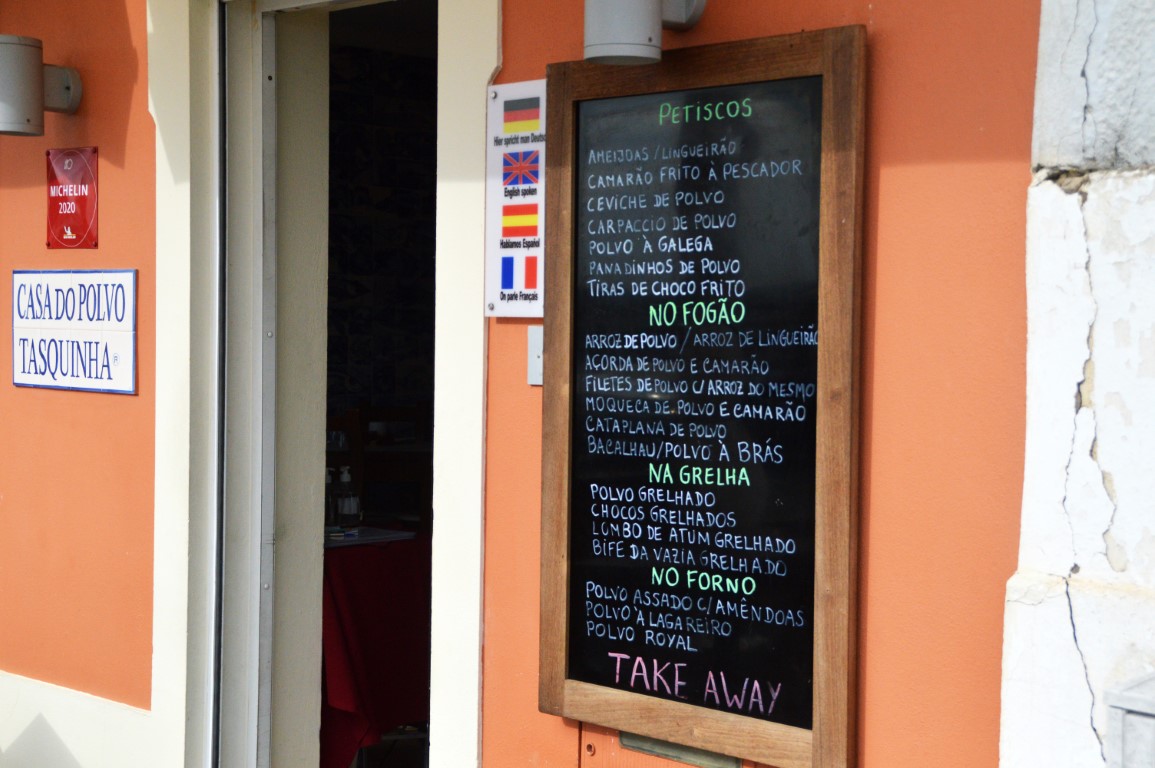 MICHELIN
2020
CASA DO POLVO
TASQUINHA®
Hier spricht man Deutsch
English spoken
Hablamos Español
On parle Français
PETISCOS
AMEIJOAS / LINGUEIRÃO
CAMARÃO FRITO À PESCADOR
CEVICHE DE POLVO
CARPACCIO DE POLVO
POLVO À GALEGA
PANADINHOS DE POLVO
TIRAS DE CHOCO FRITO
NO FOGÃO
ARROZ DE POLVO / ARROZ DE LINGUEIRÃO
AÇORDA DE POLVO E CAMARÃO
FILETES DE POLVO C/ ARROZ DO MESMO
MOQUECA DE POLVO E CAMARÃO
CATAPLANA DE POLVO
BACALHAU/POLVO À BRÁS
NA GRELHA
POLVO GRELHADO
CHOCOS GRELHADOS
LOMBO DE ATUM GRELHADO
BIFE DA VAZIA GRELHADO
NO FORNO
POLVO ASSADO C/ AMÊNDOAS
POLVO À LAGAREIRO
POLVO ROYAL
TAKE AWAY